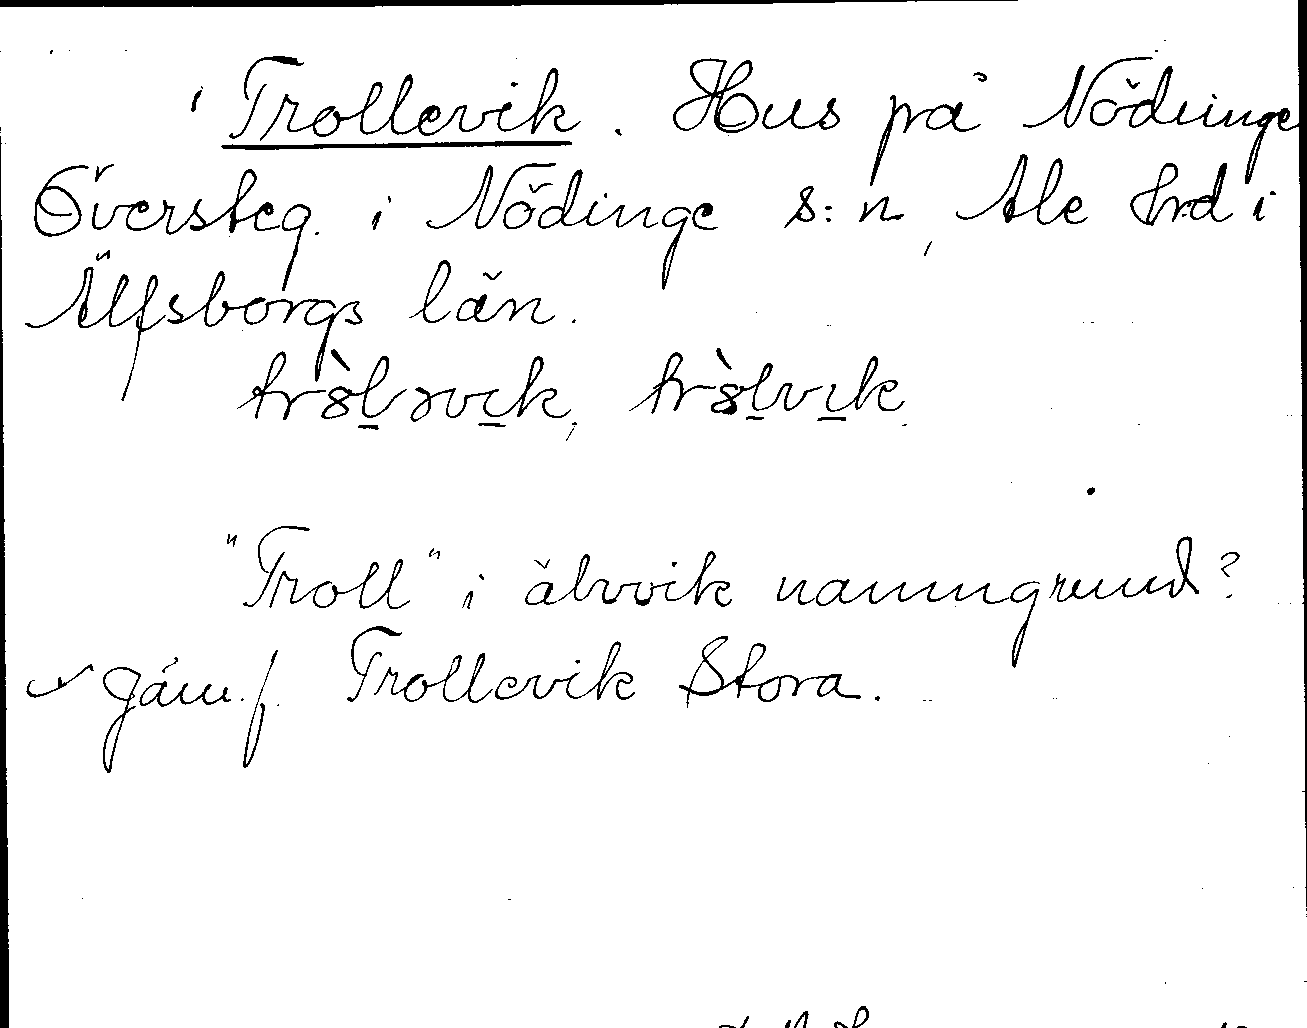 Trollevik. Hus på Nödinge
Översteg. i Nödinge s:n, Ale hrd i
Älfsborgs län.
"Troll" i älvvik namngrund?
Jäm.f. Trollevik Stora.